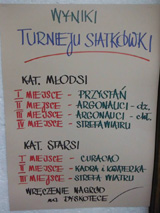 WYNIKI
TURNIEJU SIATKÓWKI
KAT. MŁODSI
I MIEJSCE - PRZYSTAŃ
II MIEJSCE - ARGONAUCI - dz.
III MIEJSCE - ARGONAUCI - chł.
IV MIEJSCE - STREFA WIATRU
KAT. STARSI
I MIEJSCE - CURACAO
II MIEJSCE - KADRA i KRAJERKA
III MIEJSCE - STREFA WIATRU
WRĘCZENIE NAGRÓD
NA DYSKOTECE